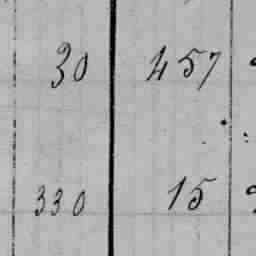 30 457
330 15